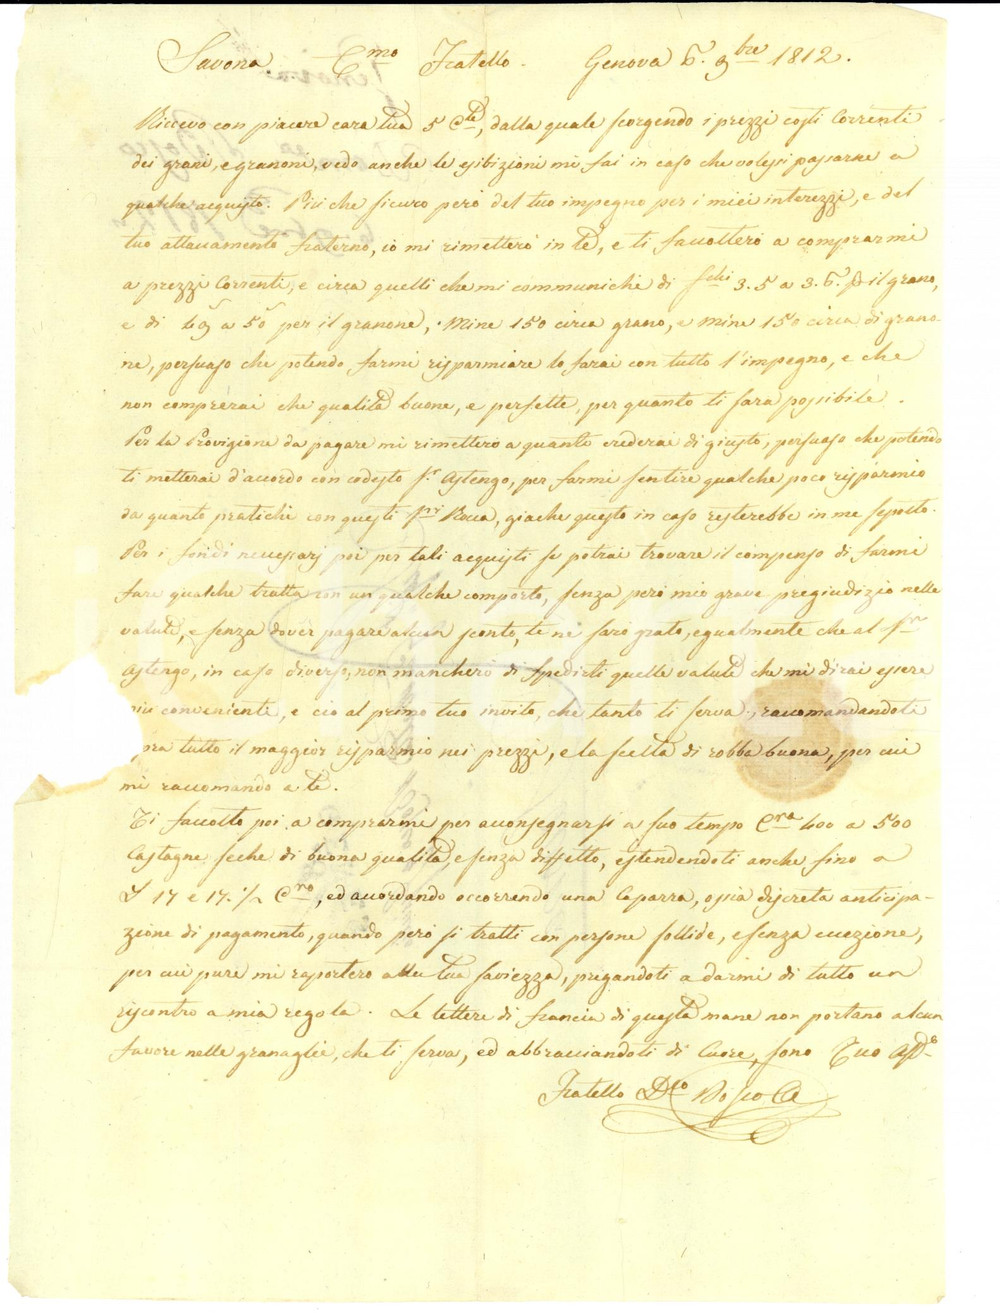 Savona. C.mo Fratello. Genova 6. 9bre 1812.
Ricevo con piacere cara tua 5 C.te, dalla quale scorgendo i prezzi costì Correnti
dei grani, e granoni, vedo anche le esibizioni mi fai in caso che volessi passarne a
qualche acquisto. Più che sicuro però del tuo impegno per i miei interezzi, e del
tuo attaccamento fraterno, io mi rimetterò in te, e ti facolterò a comprarmi
a prezzi Correnti, e circa quelli che mi communichi di 3.5 a 3.6 il grano,
e di 49 a 50 per il granone, Mine 150 circa grano, e Mine 150 circa di grano-
ne, persuaso che potendo farmi risparmiare lo farai con tutto l'impegno, e che
non comprerai che qualità buone, e perfette, per quanto ti sarà possibile.
Per la Provigione da pagare mi rimetterò a quanto crederai di giusto, persuaso che potendo
ti metterai d'accordo con codesto S.r Astengo, per farmi sentire qualche poco risparmio
da quanto pratichi con questi S.ri Rocca, giache questo in caso resterebbe in me
Per i fondi necessarj poi per tali acquisti se potrai trovare il compenso di farmi
fare qualche tratta con un qualche comporto, senza però mio grave pregiudizio nelle
valute, e senza dover pagare alcun sconto, te ne sarò grato, egualmente che al S.r
Astengo, in caso diverso, non mancherò di spedirti quelle valute che mi dirai essere
più conveniente, e ciò al primo tuo invito, che tanto ti serva, raccomandandoti
pra tutto il maggior risparmio nei prezzi, e la scelta di robba buona, per cui
mi raccomando a te.
Ti facolto poi a comprarmi per acconsegnarsi a suo tempo C.ra 400 a 500
Castagne secche di buona qualità, e senza diffetto, estendendoti anche fino a
17 e 17.1/2 C.ro, ed accordando occorrendo una Caparra, ossia discreta anticipa-
zione di pagamento, quando però si tratti con persone sollide, e senza eccezione,
per cui pure mi raporterò alla tua saviezza, pregandoti a darmi di tutto un
riscontro a mia regola. Le lettere di francia di questa mane non portano alcun
favore nelle granaglie, che ti serva, ed abbracciandoti di Cuore, sono Tuo
Fratello D.co